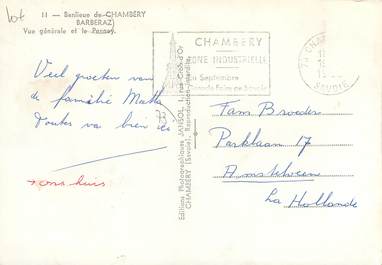 lot
11 — Banlieue de CHAMBÉRY
BARBERAZ
Vue générale et le Pennay.
CHAMBERY
ZONE INDUSTRIELLE
en Septembre
Grande Foire de Savoie
SAVOIE
Veel groeten van
de familie
Toutes va bien
ons huis
Editions Photographiques JANSOL, 1, rue Croix d'Or
CHAMBÉRY (Savoie). Reproduction interdite.
Fam Broeder
Parklaan 17
Amstelveen
La Hollande